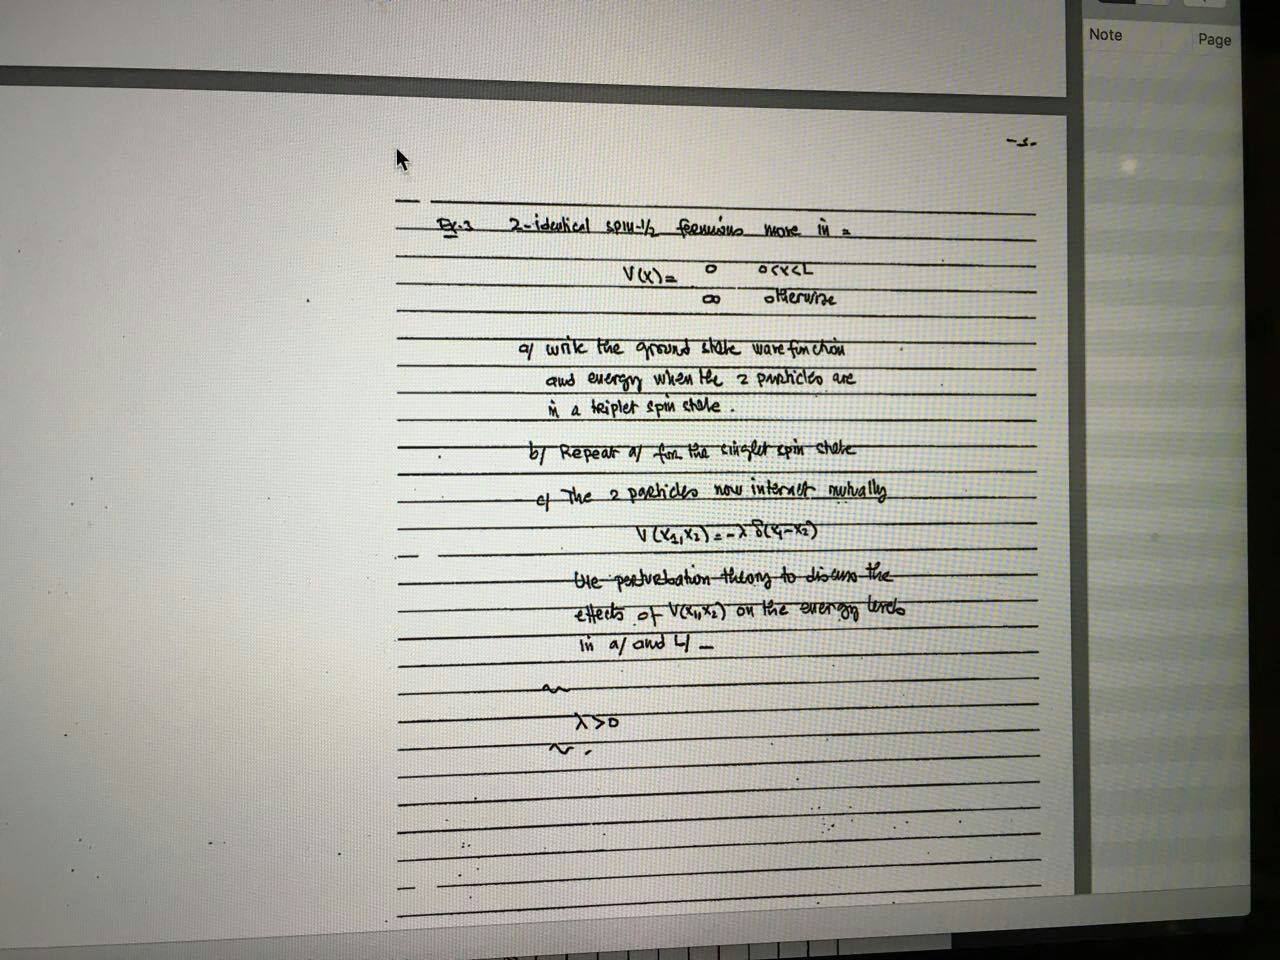 Note
Page
-3-
Ex.3 2-identical spin-1/2 fermions move in a
V(x)= 0 0<x<L
∞ otherwise
a/ write the ground state wavefunction
and energy when the 2 particles are
in a triplet spin state.
b/ Repeat a/ for the singlet spin state
c/ The 2 particles now interact mutually
V(x1,x2)=-λ δ(x1-x2)
Use perturbation theory to discuss the
effects of V(x1,x2) on the energy levels
in a/ and b/ —
~
λ>0
~ .